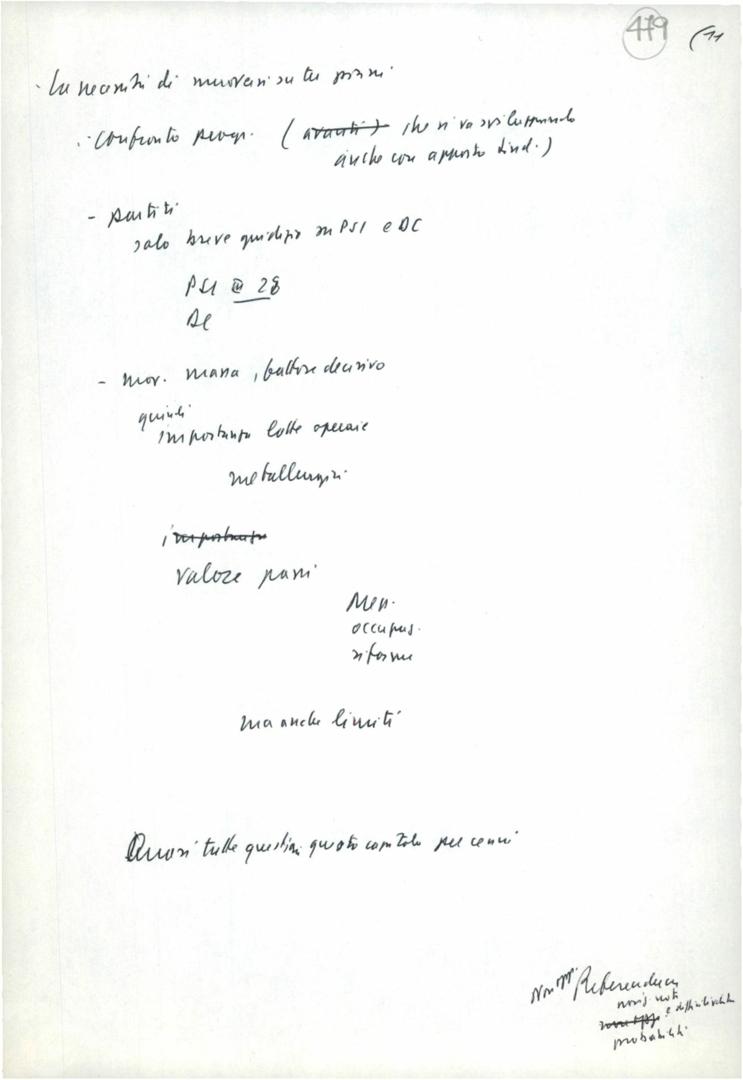 479 (11
· La necessità di muoversi su tre piani
·· Confronto progr. (avanti) che si va sviluppando
anche con apporto sind.)
- partiti
solo breve giudizio su PSI e DC
PSI 28
DC
- mov. massa, fattore decisivo
quindi
importanza lotte operaie
metallurgici
importanza
valore passi
Men.
occupaz.
riforme
ma anche limiti
Quasi tutte questioni questo capitolo per cenni
Non Referendum
probabili